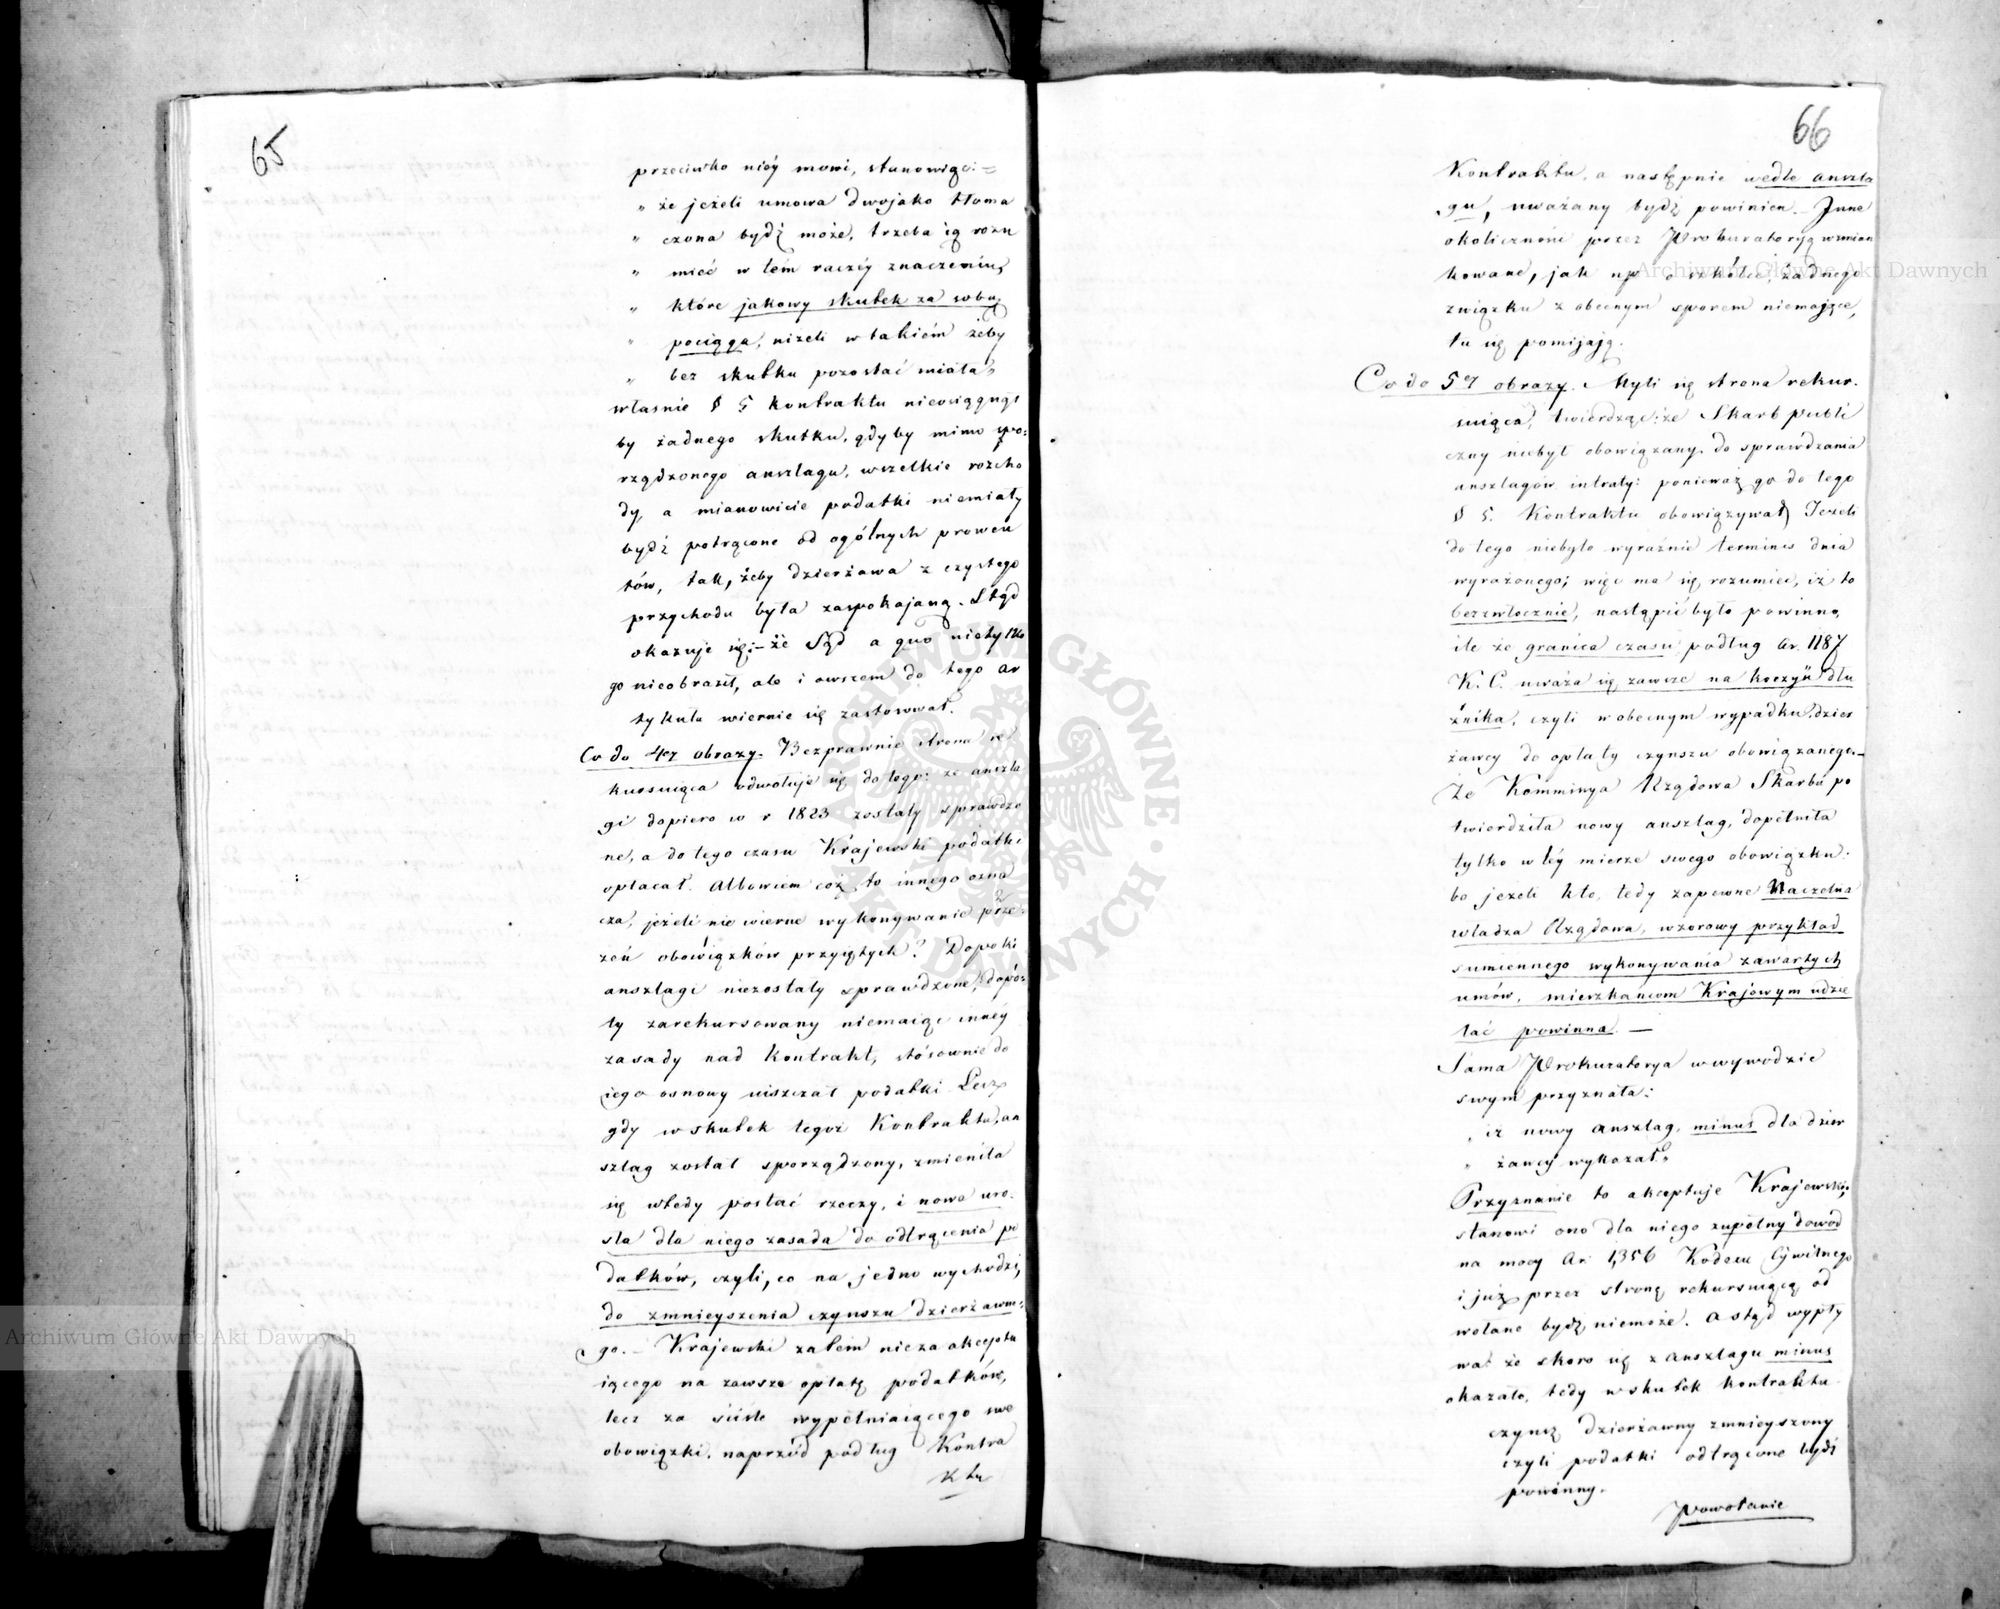 65
przeciwko nióy mowi, stanowiąc:=
„ że jeżeli umowa dwojako tłoma
„ czona bydź może, trzeba ią rozu
„ mieć w tém raczéy znaczeniu,
„ które jakowy skutek za sobą
„ pociąga, niżeli w takiém żeby
„ bez skutku pozostać miała„
własnie § 5 kontraktu nieociągnął
by żadnego skutku, gdyby mimo spo:
rządzonego anszlagu, wszelkie rozcho
dy, a mianowicie podatki niemiały
bydź potrącone od ogólnych prowen
tów, tak, żeby dzierżawa z czystego
przychodu była zaspokajaną. Stąd
okazuje się:– że Sąd a quo nietylko
go nieobraził, ale i owszem do tego ar
tykułu wiernie się zastosował.
Co do 4ey obrazy. Bezprawnie strona re
kursuiąca odwołuje się do tego: że anszla
gi dopiero w r 1823 zostały sprawdzo
ne, a do tego czasu Krajewski podatki
opłacał. Albowiem coż to innego ozna
cza, jeżeli nie wierne wykonywanie prze:
zeń obowiązków przyiętych? Dopoki
anszlagi niezostały sprawdzone, dopó:
ty zarekursowany niemaiąc innéy
zasady nad kontrakt, stósownie do
iego osnowy uiszczał podatki Lecz
gdy w skutek tegoż Kontraktu, an
szlag został sporządzony, zmieniła
się wtedy postać rzeczy, i nowa uro.
sła dla niego zasada do odtrącenia po
datków, czyli, co na jedno wychodzi,
do zmnieyszenia czynszu dzierżawne:
go. – Krajewski zatem nie za akceptu
iącego na zawsze opłatę podatków,
lecz za ściśle wypełniaiącego swe
obowiązki, naprzód podług Kontra
ktu
66
Kontraktu, a następnie wedle anszla
gu, uważany bydź powinien. – Inne
okoliczności przez Prokuratoryą wzmian
kowane, jak np o szkółce, żadnego
związku z obecnym sporem niemające,
tu się pomijają.
Co do 5ey obrazy. Myli się strona rekur.
suiąca, twierdząc: że Skarb publi
czny niebył obowiązany do sprawdzania
anszlagów intraty: ponieważ go do tego
§ 5. Kontraktu obowiązywał Jeżeli
do tego niebyło wyraźnie terminu dnia
wyrażonego; więc ma się rozumieć, iż to
bezzwłocznie, nastąpić było powinno,
ile że granica czasu podług Ar. 1187
K. C. uważa się zawsze na korzyść dłu
żnika, czyli w obecnym wypadku, dzier
żawcy do opłaty czynszu obowiązanego. –
Że Kommissya Rządowa Skarbu po
twierdziła nowy anszlag, dopełniła
tylko w téy mierze swego obowiązku:
bo jeżeli kto, tedy zapewne Naczelna
władza Rządowa, wzorowy przykład
sumiennego wykonywania zawartych
umów, mieszkancom Krajowym udzie
lać powinna. —
Sama Prokuratorya w wywodzie
swym przyznała:
„ iż nowy anszlag, minus dla dzier
„ żawcy wykazał„
Przyznanie to akceptuje Krajewski;
stanowi ono dla niego zupełny dowód
na mocy Ar 1,356 Kodexu Cywilnego
i już przez stronę rekursuiącą od
wołane bydź niemoże. A stąd wypły
wa: że skoro się z anszlagu minus
okazało, tedy w skutek kontraktu
czynsz dzierżawny zmnieyszony
czyli podatki odtrącone bydź
powinny.
Powołanie
Archiwum Główne Akt Dawnych
Archiwum Główne Akt Dawnych
ARCHIWUM GŁÓWNE AKT DAWNYCH